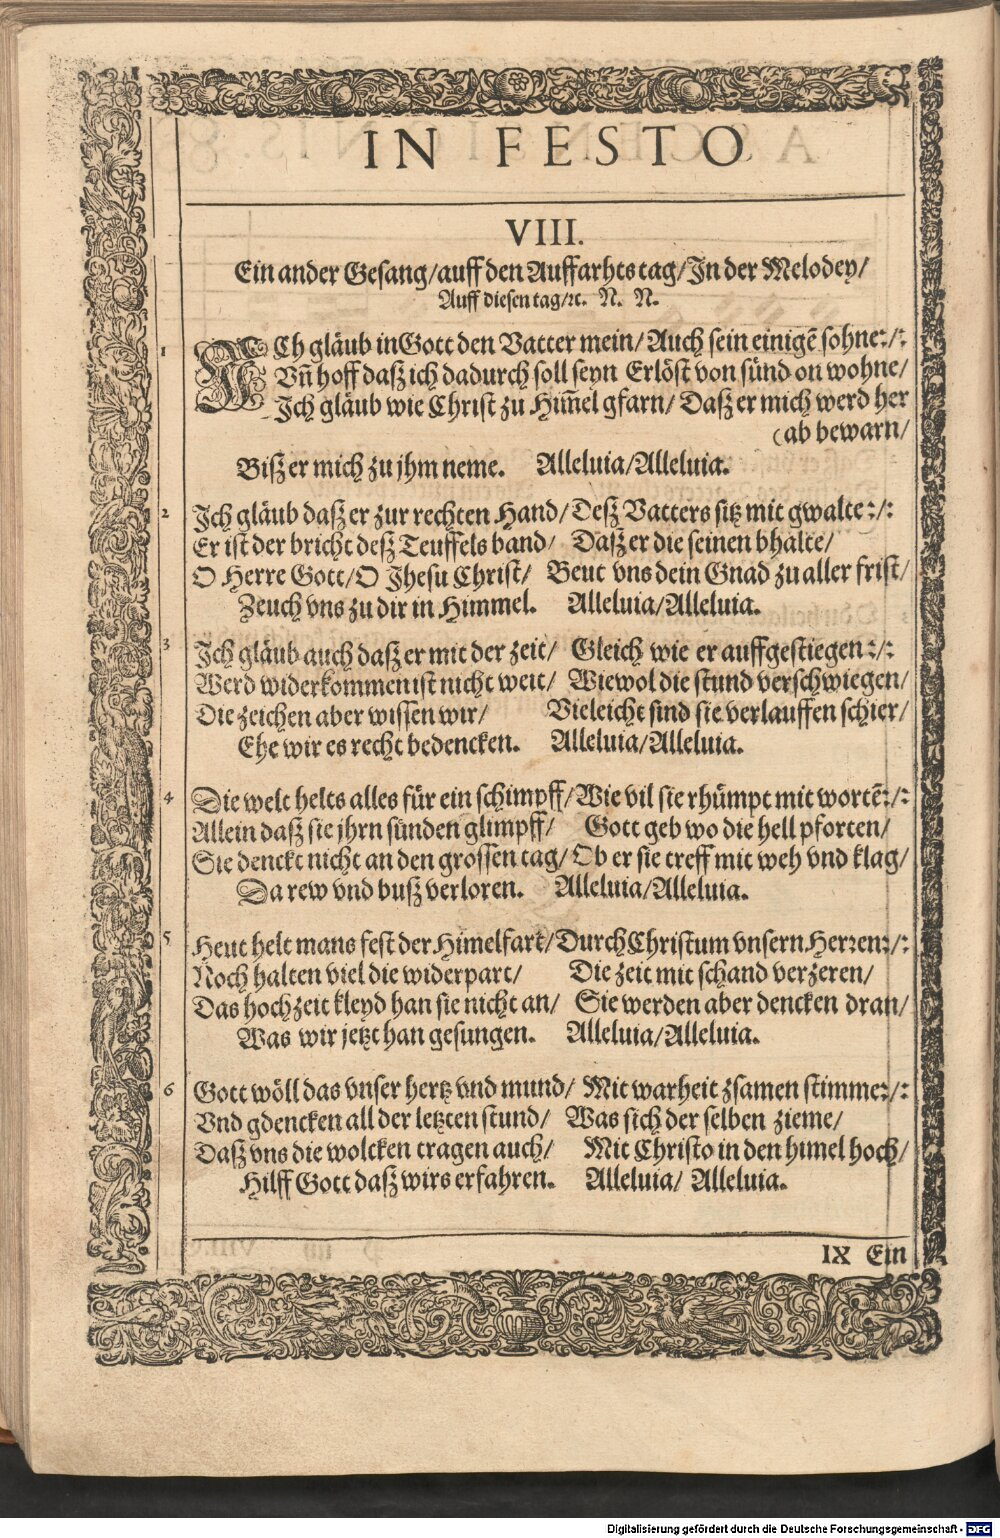 IN FESTO
VIII.
Ein ander Gesang/auff den Auffarhts tag/In der Melodey/
Auff diesen tag/ꝛc. N. N.
1 ICh gläub in Gott den Vatter mein/ Auch sein einigẽ sohne:/:
Vñ hoff daß ich dadurch soll seyn Erlöst von sünd on wohne/
Ich gläub wie Christ zu Him̃el gfarn/ Daß er mich werd her
(ab bewarn/
Biß er mich zu jhm neme. Alleluia/Alleluia.
2 Ich gläub daß er zur rechten Hand/ Deß Vatters sitz mit gwalte:/:
Er ist der bricht deß Teuffels band/ Daß er die seinen bhalte/
O Herre Gott/O Jhesu Christ/ Beut vns dein Gnad zu aller frist/
Zeuch vns zu dir in Himmel. Alleluia/Alleluia.
3 Ich gläub auch daß er mit der zeit/ Gleich wie er auffgestiegen:/:
Werd widerkommen ist nicht weit/ Wiewol die stund verschwiegen/
Die zeichen aber wissen wir/ Vieleicht sind sie verlauffen schier/
Ehe wir es recht bedencken. Alleluia/Alleluia.
4 Die welt helts alles für ein schimpff/Wie vil sie rhümpt mit wortẽ:/:
Allein daß sie jhrn sünden glimpff/ Gott geb wo die hell pforten/
Sie denckt nicht an den grossen tag/ Ob er sie treff mit weh vnd klag/
Da rew vnd buß verloren. Alleluia/Alleluia.
5 Heut helt mans fest der Himelfart/Durch Christum vnsern Herꝛen:/:
Noch halten viel die widerpart/ Die zeit mit schand verzeren/
Das hochzeit kleyd han sie nicht an/ Sie werden aber dencken dran/
Was wir jetzt han gesungen. Alleluia/Alleluia.
6 Gott wöll das vnser hertz vnd mund/ Mit warheit zsamen stimme:/:
Vnd gdencken all der letzten stund/ Was sich der selben zieme/
Daß vns die wolcken tragen auch/ Mit Christo in den himel hoch/
Hilff Gott daß wirs erfahren. Alleluia/ Alleluia.
IX Ein
Digitalisierung gefördert durch die Deutsche Forschungsgemeinschaft - DFG